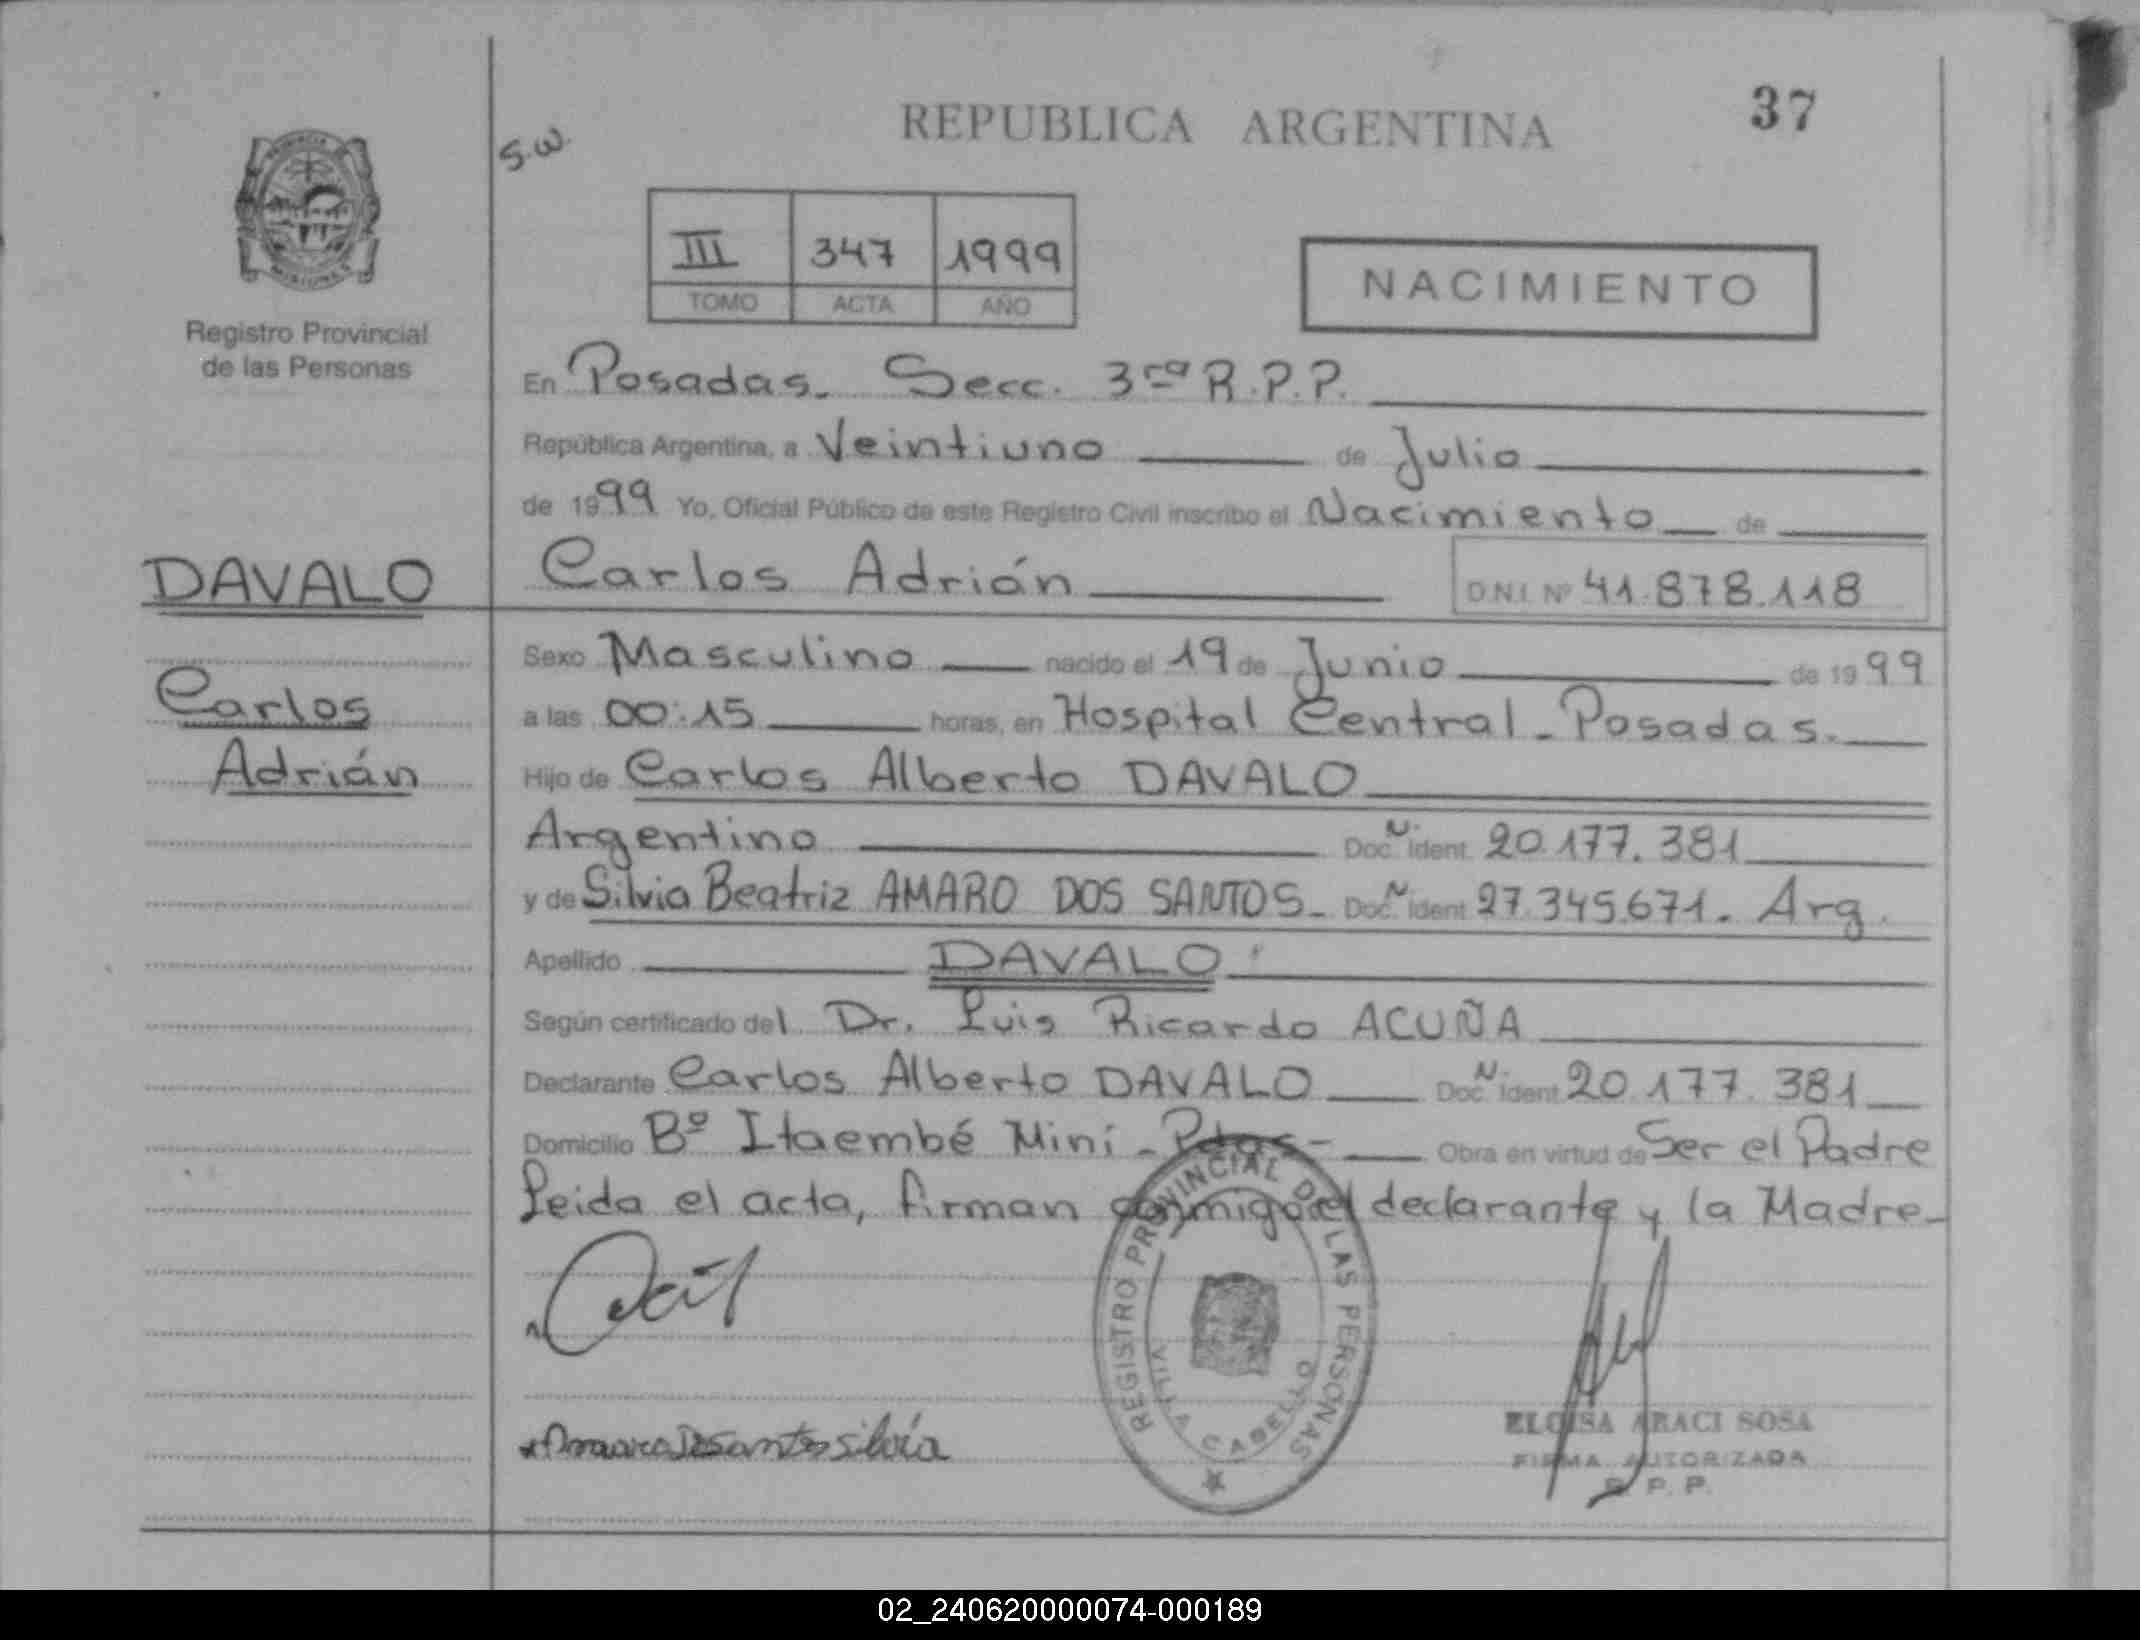 REPUBLICA ARGENTINA
37
S.W.
III 347 1999
TOMO ACTA AÑO
NACIMIENTO
Registro Provincial
de las Personas
En Posadas. Secc. 3ra R.P.P.
República Argentina, a Veintiuno de Julio
de 1999 Yo, Oficial Público de este Registro Civil inscribo el Nacimiento de
DAVALO
Carlos Adrián D.N.I. Nº 41.878.118
Sexo Masculino nacido el 19 de Junio de 1999
Carlos
a las 00:15 horas, en Hospital Central - Posadas.
Adrián
Hijo de Carlos Alberto DAVALO
Argentino Doc. N. Ident. 20.177.381
y de Silvia Beatriz AMARO DOS SANTOS - Doc. N. Ident. 27.345.671. Arg.
Apellido DAVALO
Según certificado del Dr. Luis Ricardo ACUÑA
Declarante Carlos Alberto DAVALO Doc. N. Ident. 20.177.381
Domicilio Bº Itaembé Miní - Pdas - Obra en virtud de Ser el Padre
Leida el acta, firman conmigo el declarante y la Madre -
REGISTRO PROVINCIAL DE LAS PERSONAS
VILLA CABELLO
Amaro Dos Santos silvia
ELOISA ARACI SOSA
FIRMA AUTORIZADA
R. P. P.
02_240620000074-000189